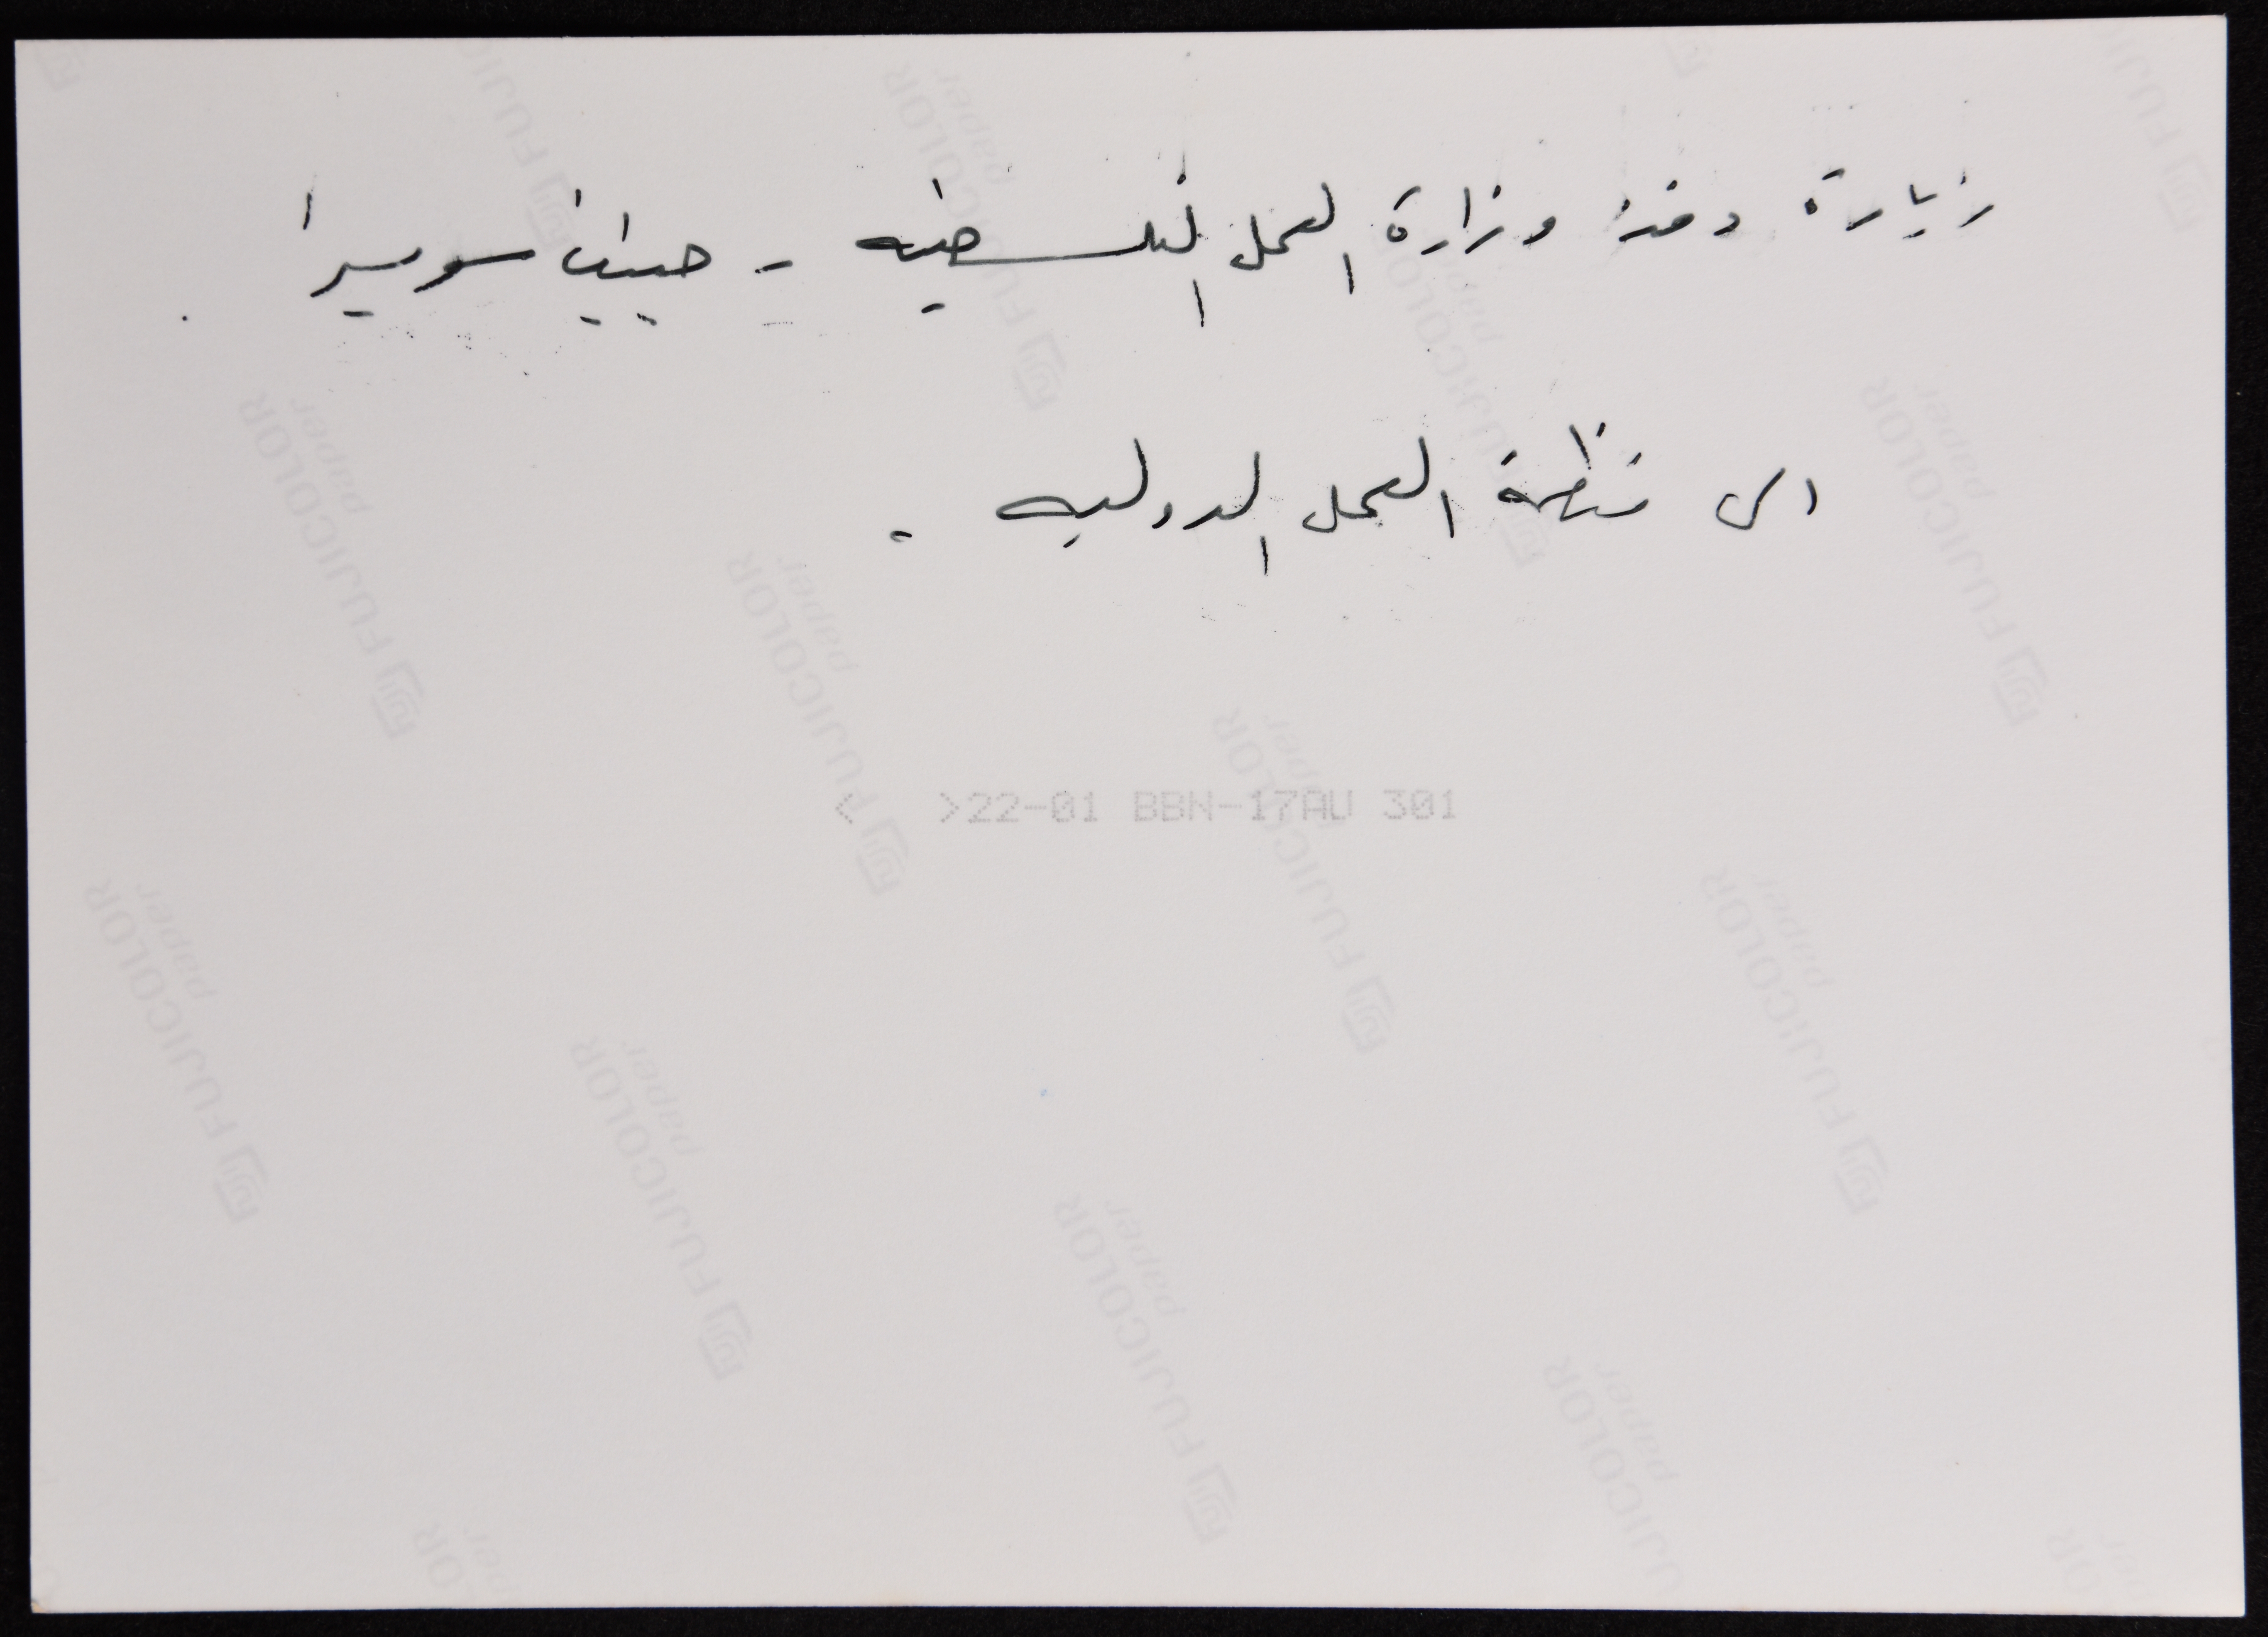 زيارة وفد وزارة العمل الفلسطينيه - جنيف سويسرا .
الى منظمة العمل الدوليه .
< >22-01 BBN-17AU 301
FUJICOLOR paper